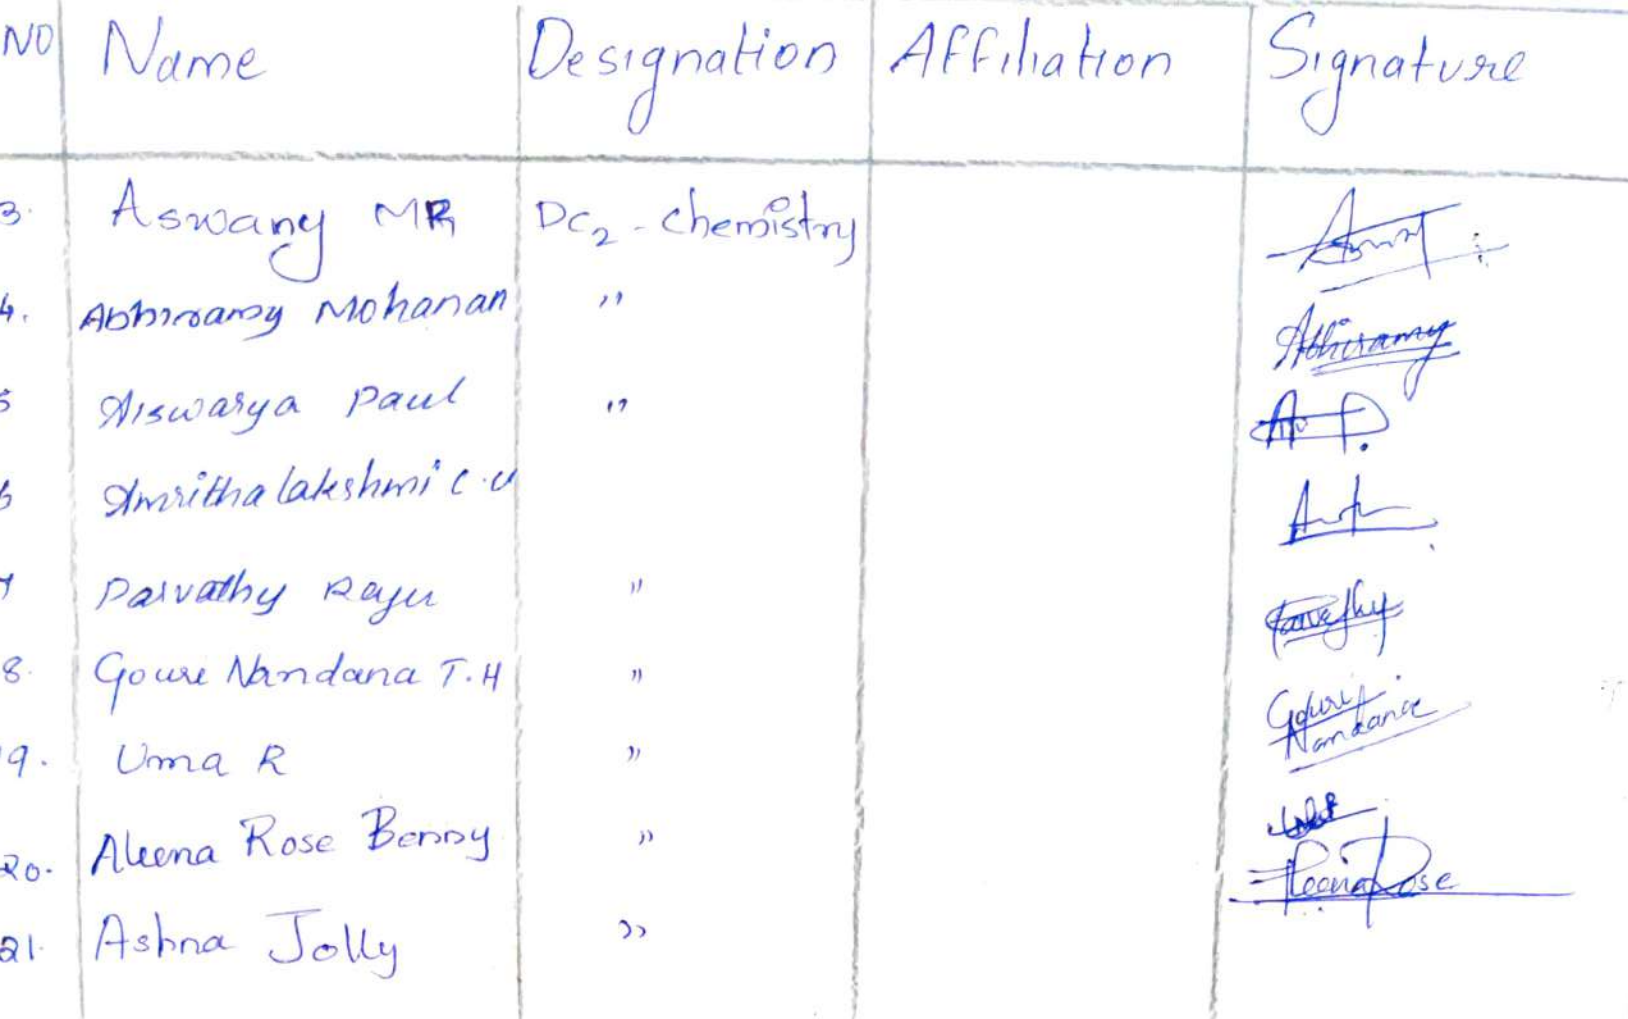 NO Name Designation Affiliation Signature
3. Aswany MR DC2 - Chemistry
4. Abhiramy Mohanan " Abhiramy
5 Aiswarya Paul " A P.
6 Amrithalakshmi C.U
7 Parvathy Raju " Parvathy
8. Gouri Nandana T.H " Gouri Nandana
9. Uma R "
20. Aleena Rose Benny " Aleena Rose
21. Ashna Jolly "